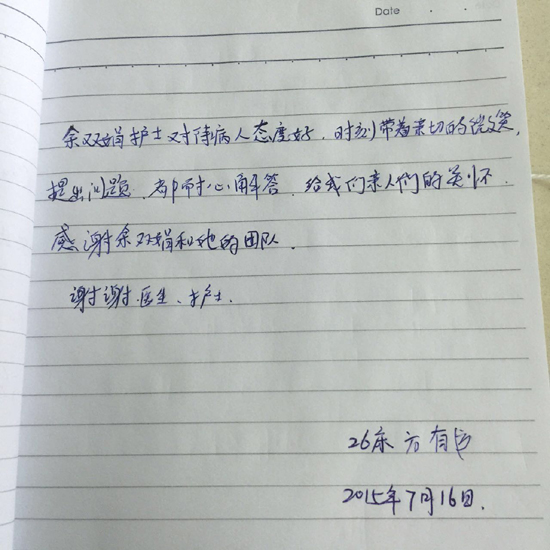 Date
余双娟护士对待病人态度好,时刻带着亲切的微笑,
提出问题,都耐心解答,给我们亲人们的关怀.
感谢余双娟和她的团队.
谢谢.医生、护士.
26床 方有
2015年7月16日.